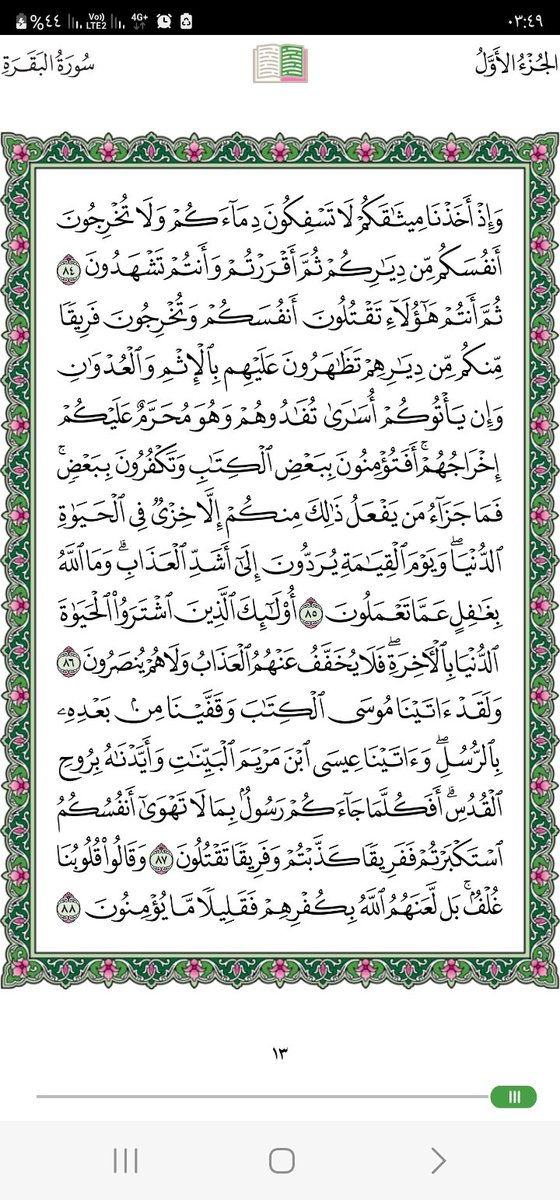 %٤٤ Vo)) LTE2 4G+ ٠٣:٤٩
الجُزْءُ الأَوَّلُ
سُورَةُ البَقَرَةِ
وَإِذْ أَخَذْنَا مِيثَٰقَكُمْ لَا تَسْفِكُونَ دِمَآءَكُمْ وَلَا تُخْرِجُونَ
أَنفُسَكُم مِّن دِيَٰرِكُمْ ثُمَّ أَقْرَرْتُمْ وَأَنتُمْ تَشْهَدُونَ ٨٤
ثُمَّ أَنتُمْ هَٰٓؤُلَآءِ تَقْتُلُونَ أَنفُسَكُمْ وَتُخْرِجُونَ فَرِيقًا
مِّنكُم مِّن دِيَٰرِهِمْ تَظَٰهَرُونَ عَلَيْهِم بِٱلْإِثْمِ وَٱلْعُدْوَٰنِ
وَإِن يَأْتُوكُمْ أُسَٰرَىٰ تُفَٰدُوهُمْ وَهُوَ مُحَرَّمٌ عَلَيْكُمْ
إِخْرَاجُهُمْ ۚ أَفَتُؤْمِنُونَ بِبَعْضِ ٱلْكِتَٰبِ وَتَكْفُرُونَ بِبَعْضٍ ۚ
فَمَا جَزَآءُ مَن يَفْعَلُ ذَٰلِكَ مِنكُمْ إِلَّا خِزْىٌ فِى ٱلْحَيَوٰةِ
ٱلدُّنْيَا ۖ وَيَوْمَ ٱلْقِيَٰمَةِ يُرَدُّونَ إِلَىٰٓ أَشَدِّ ٱلْعَذَابِ ۗ وَمَا ٱللَّهُ
بِغَٰفِلٍ عَمَّا تَعْمَلُونَ ٨٥ أُو۟لَٰٓئِكَ ٱلَّذِينَ ٱشْتَرَوُا۟ ٱلْحَيَوٰةَ
ٱلدُّنْيَا بِٱلْءَاخِرَةِ ۖ فَلَا يُخَفَّفُ عَنْهُمُ ٱلْعَذَابُ وَلَا هُمْ يُنصَرُونَ ٨٦
وَلَقَدْ ءَاتَيْنَا مُوسَى ٱلْكِتَٰبَ وَقَفَّيْنَا مِنۢ بَعْدِهِۦ
بِٱلرُّسُلِ ۖ وَءَاتَيْنَا عِيسَى ٱبْنَ مَرْيَمَ ٱلْبَيِّنَٰتِ وَأَيَّدْنَٰهُ بِرُوحِ
ٱلْقُدُسِ ۗ أَفَكُلَّمَا جَآءَكُمْ رَسُولٌۢ بِمَا لَا تَهْوَىٰٓ أَنفُسُكُمُ
ٱسْتَكْبَرْتُمْ فَفَرِيقًا كَذَّبْتُمْ وَفَرِيقًا تَقْتُلُونَ ٨٧ وَقَالُوا۟ قُلُوبُنَا
غُلْفٌۢ ۚ بَل لَّعَنَهُمُ ٱللَّهُ بِكُفْرِهِمْ فَقَلِيلًا مَّا يُؤْمِنُونَ ٨٨
١٣